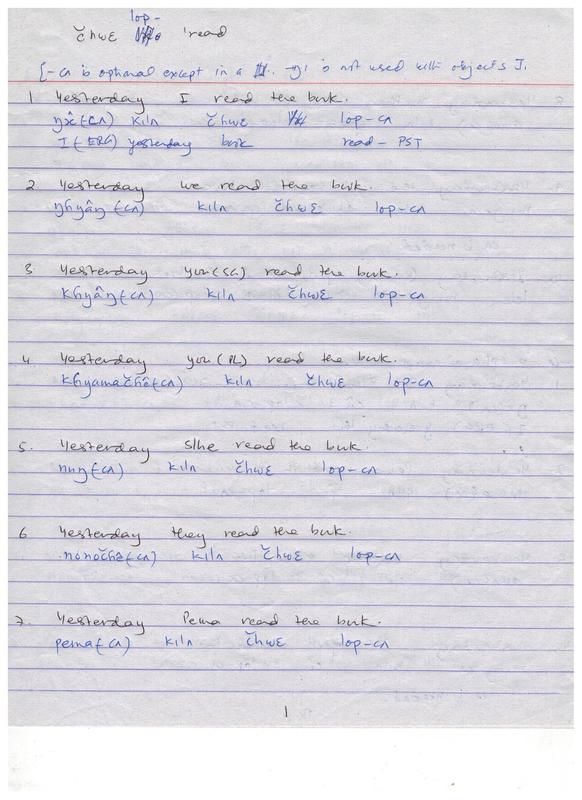 lop-
čhwɛ 'read
[-cʌ is optional except in a II. -ŋi is not used with objects].
1 Yesterday I read the book.
(cʌ) kilʌ čhwɛ lop-cʌ
I (ERG) yesterday book read-PST
2 Yesterday we read the book.
ŋhyâŋ (cʌ) kilʌ čhwɛ lop-cʌ
3 Yesterday you (SG) read the book.
khyâŋ (cʌ) kilʌ čhwɛ lop-cʌ
4 Yesterday you (PL) read the book.
khyamačhê (cʌ) kilʌ čhwɛ lop-cʌ
5. Yesterday S/he read the book.
(cʌ) kilʌ čhwɛ lop-cʌ
6 Yesterday they read the book.
nonočhê (cʌ) kilʌ čhwɛ lop-cʌ
7. Yesterday Pema read the book.
pema (cʌ) kilʌ čhwɛ lop-cʌ
1